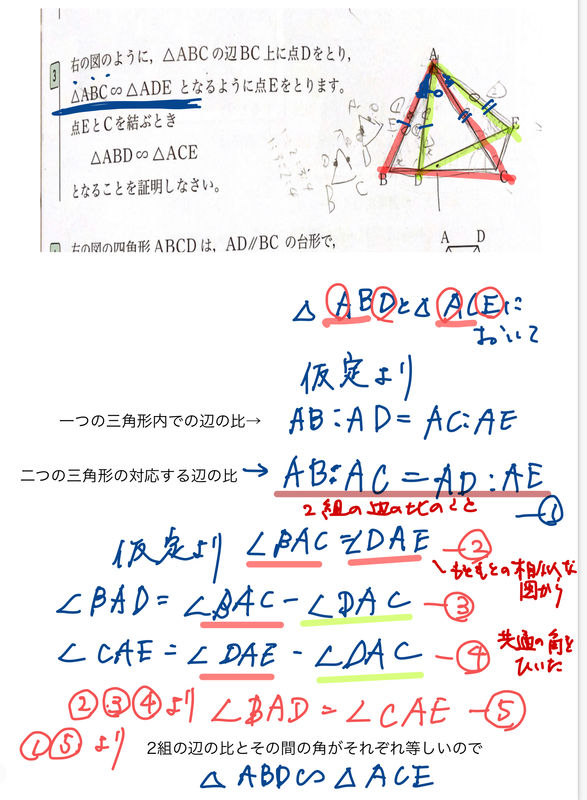 3
右の図のように，△ABCの辺BC上に点Dをとり，
△ABC∽△ADE となるように点Eをとります。
点EとCを結ぶとき
△ABD∽△ACE
となることを証明しなさい。
A
E
B
D
C
右の図の四角形ABCDは，AD//BC の台形で，
A D
△ABDと△ACEに
おいて
仮定より
一つの三角形内での辺の比→ AB:AD=AC:AE
二つの三角形の対応する辺の比→ AB:AC=AD:AE
2組の辺の比のこと
①
仮定より ∠BAC=∠DAE ー②
もともとの相似な
図から
∠BAD=∠BACー∠DAC ー③
∠CAE=∠DAEー∠DAC ー④
共通の角を
ひいた
②③④より ∠BAD=∠CAE ー⑤
①⑤より 2組の辺の比とその間の角がそれぞれ等しいので
△ABD∽△ACE